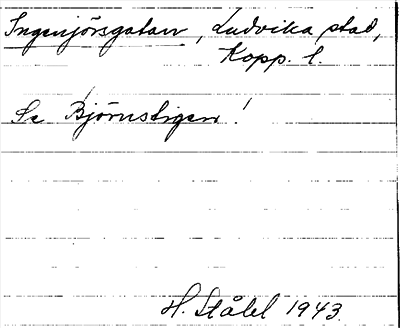 Ingenjörsgatan, Ludvika stad,
Kopp. l.
Se Björnstigen!
H. Ståhl 1943.